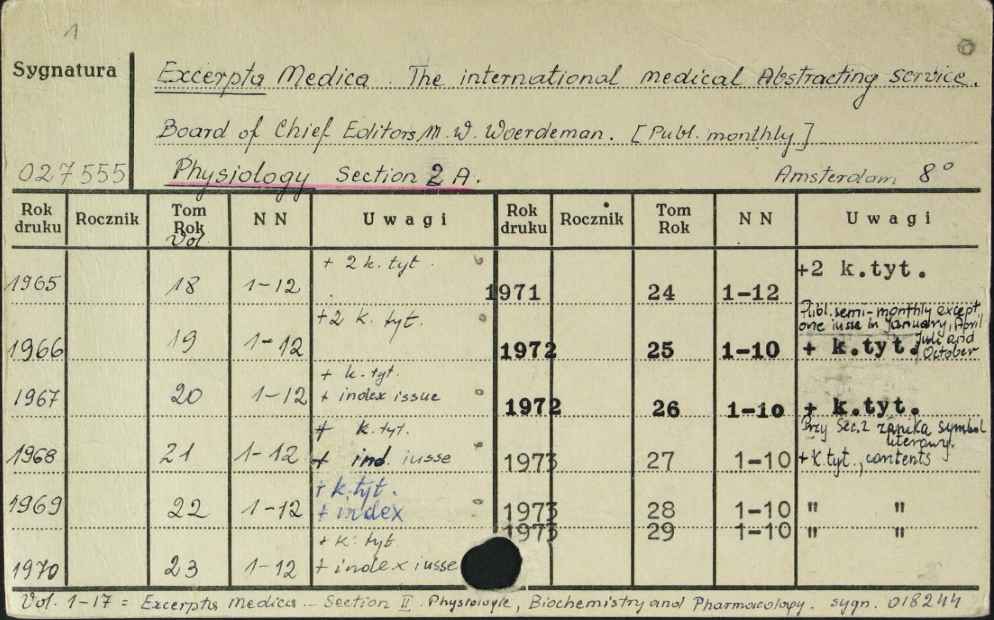 1
Sygnatura
Excerpta Medica. The international medical Abstracting service.
Board of Chief Editors, M. W. Woerdeman. [Publ. monthly]
027555 Physiology Section 2 A. Amsterdam 8°
Rok druku Rocznik Tom Rok Vol. NN Uwagi Rok druku Rocznik Tom Rok NN Uwagi
1965 18 1-12 + 2 k. tyt. 1971 24 1-12 +2 k.tyt.
1966 19 1-12 +2 k. tyt. 1972 25 1-10 + k.tyt.
Publ. semi-monthly except
one iusse in January, April
Juli and
October
1967 20 1-12 + k. tyt. + index issue 1972 26 1-10 + k.tyt.
1968 21 1-12 + k. tyt. + ind. iusse 1973 27 1-10 + k.tyt., contents
Przy Sec. 2 zanika symbol
literowy.
1969 22 1-12 + k.tyt. + index 1973 28 1-10 " "
1973 29 1-10 " "
1970 23 1-12 + k. tyt. + index iusse
Vol. 1-17 = Excerpta Medica - Section II Physiologie, Biochemistry and Pharmacology. sygn. 018244